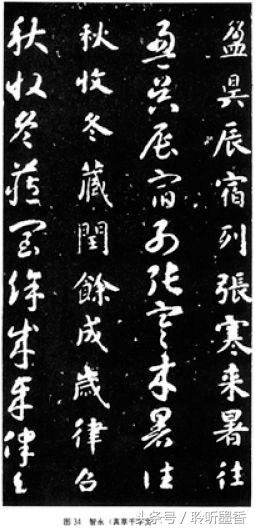 盈昃辰宿列張寒来暑往
盈昃辰宿列張寒来暑往
秋收冬藏閏餘成歲律召
秋收冬藏閏餘成歲律召
图 34 智永《真草千字文》
头条号 / 聆听墨香